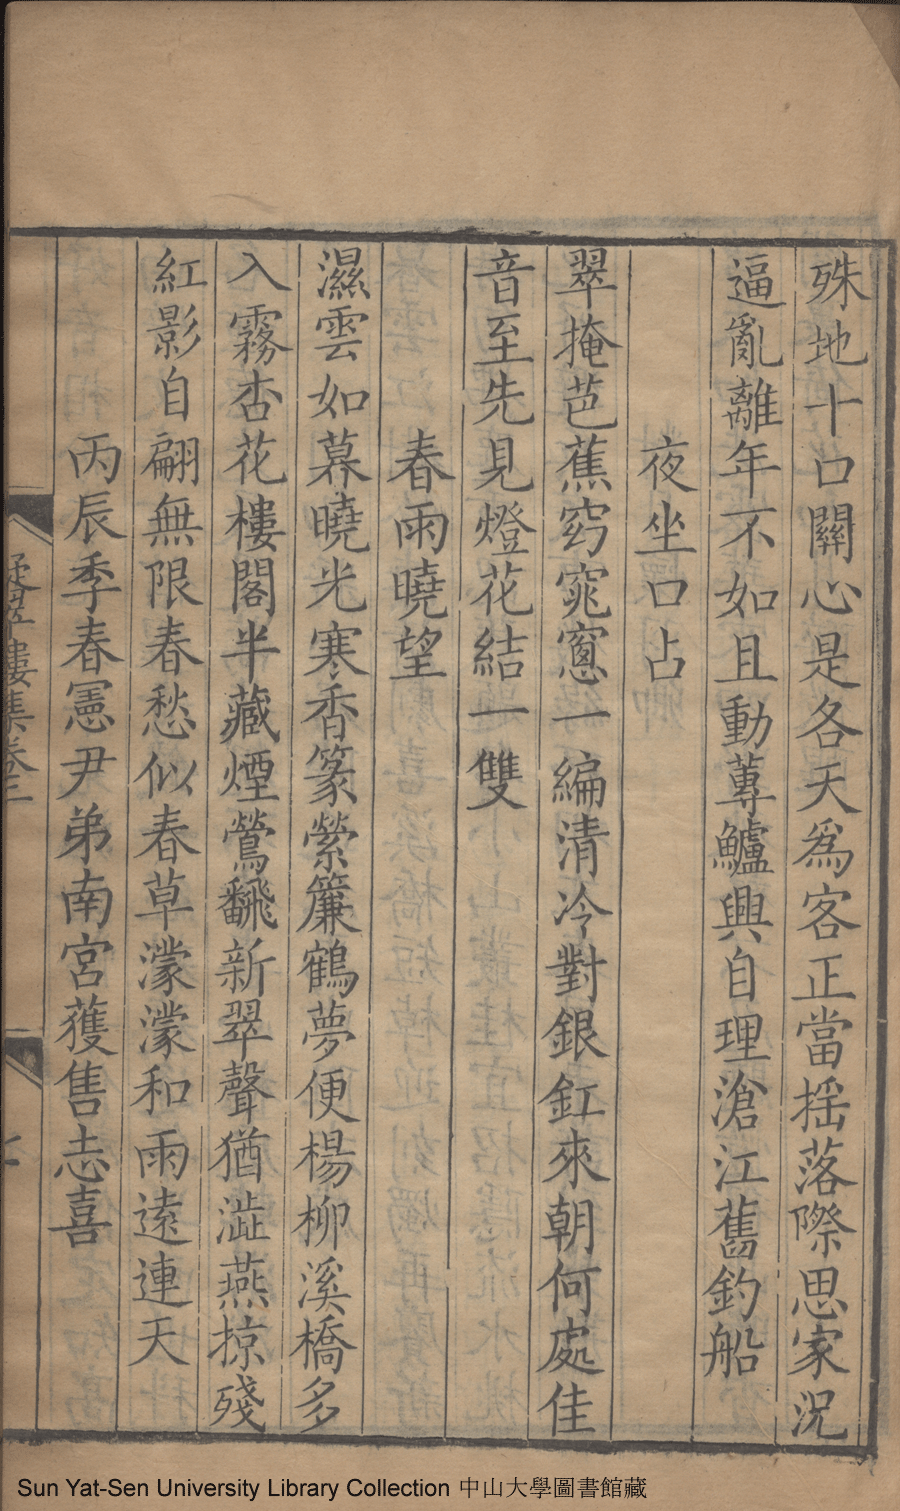 殊地十口關心是各天爲客正當揺落際思家況
逼亂離年不如且動蓴鱸興自理滄江舊釣船
夜坐口占
翠掩芭蕉窈窕窻一編清冷對銀釭來朝何處佳
音至先見燈花結一雙
春雨曉望
濕雲如幕曉光寒香篆縈簾鶴夢便楊柳溪橋多
入霧杏花樓閣半藏煙鶯飜新翠聲猶澁燕掠殘
紅影自翩無限春愁似春草濛濛和雨遠連天
丙辰季春憲尹弟南宮獲售志喜
樓集卷三
Sun Yat-Sen University Library Collection 中山大學圖書館藏